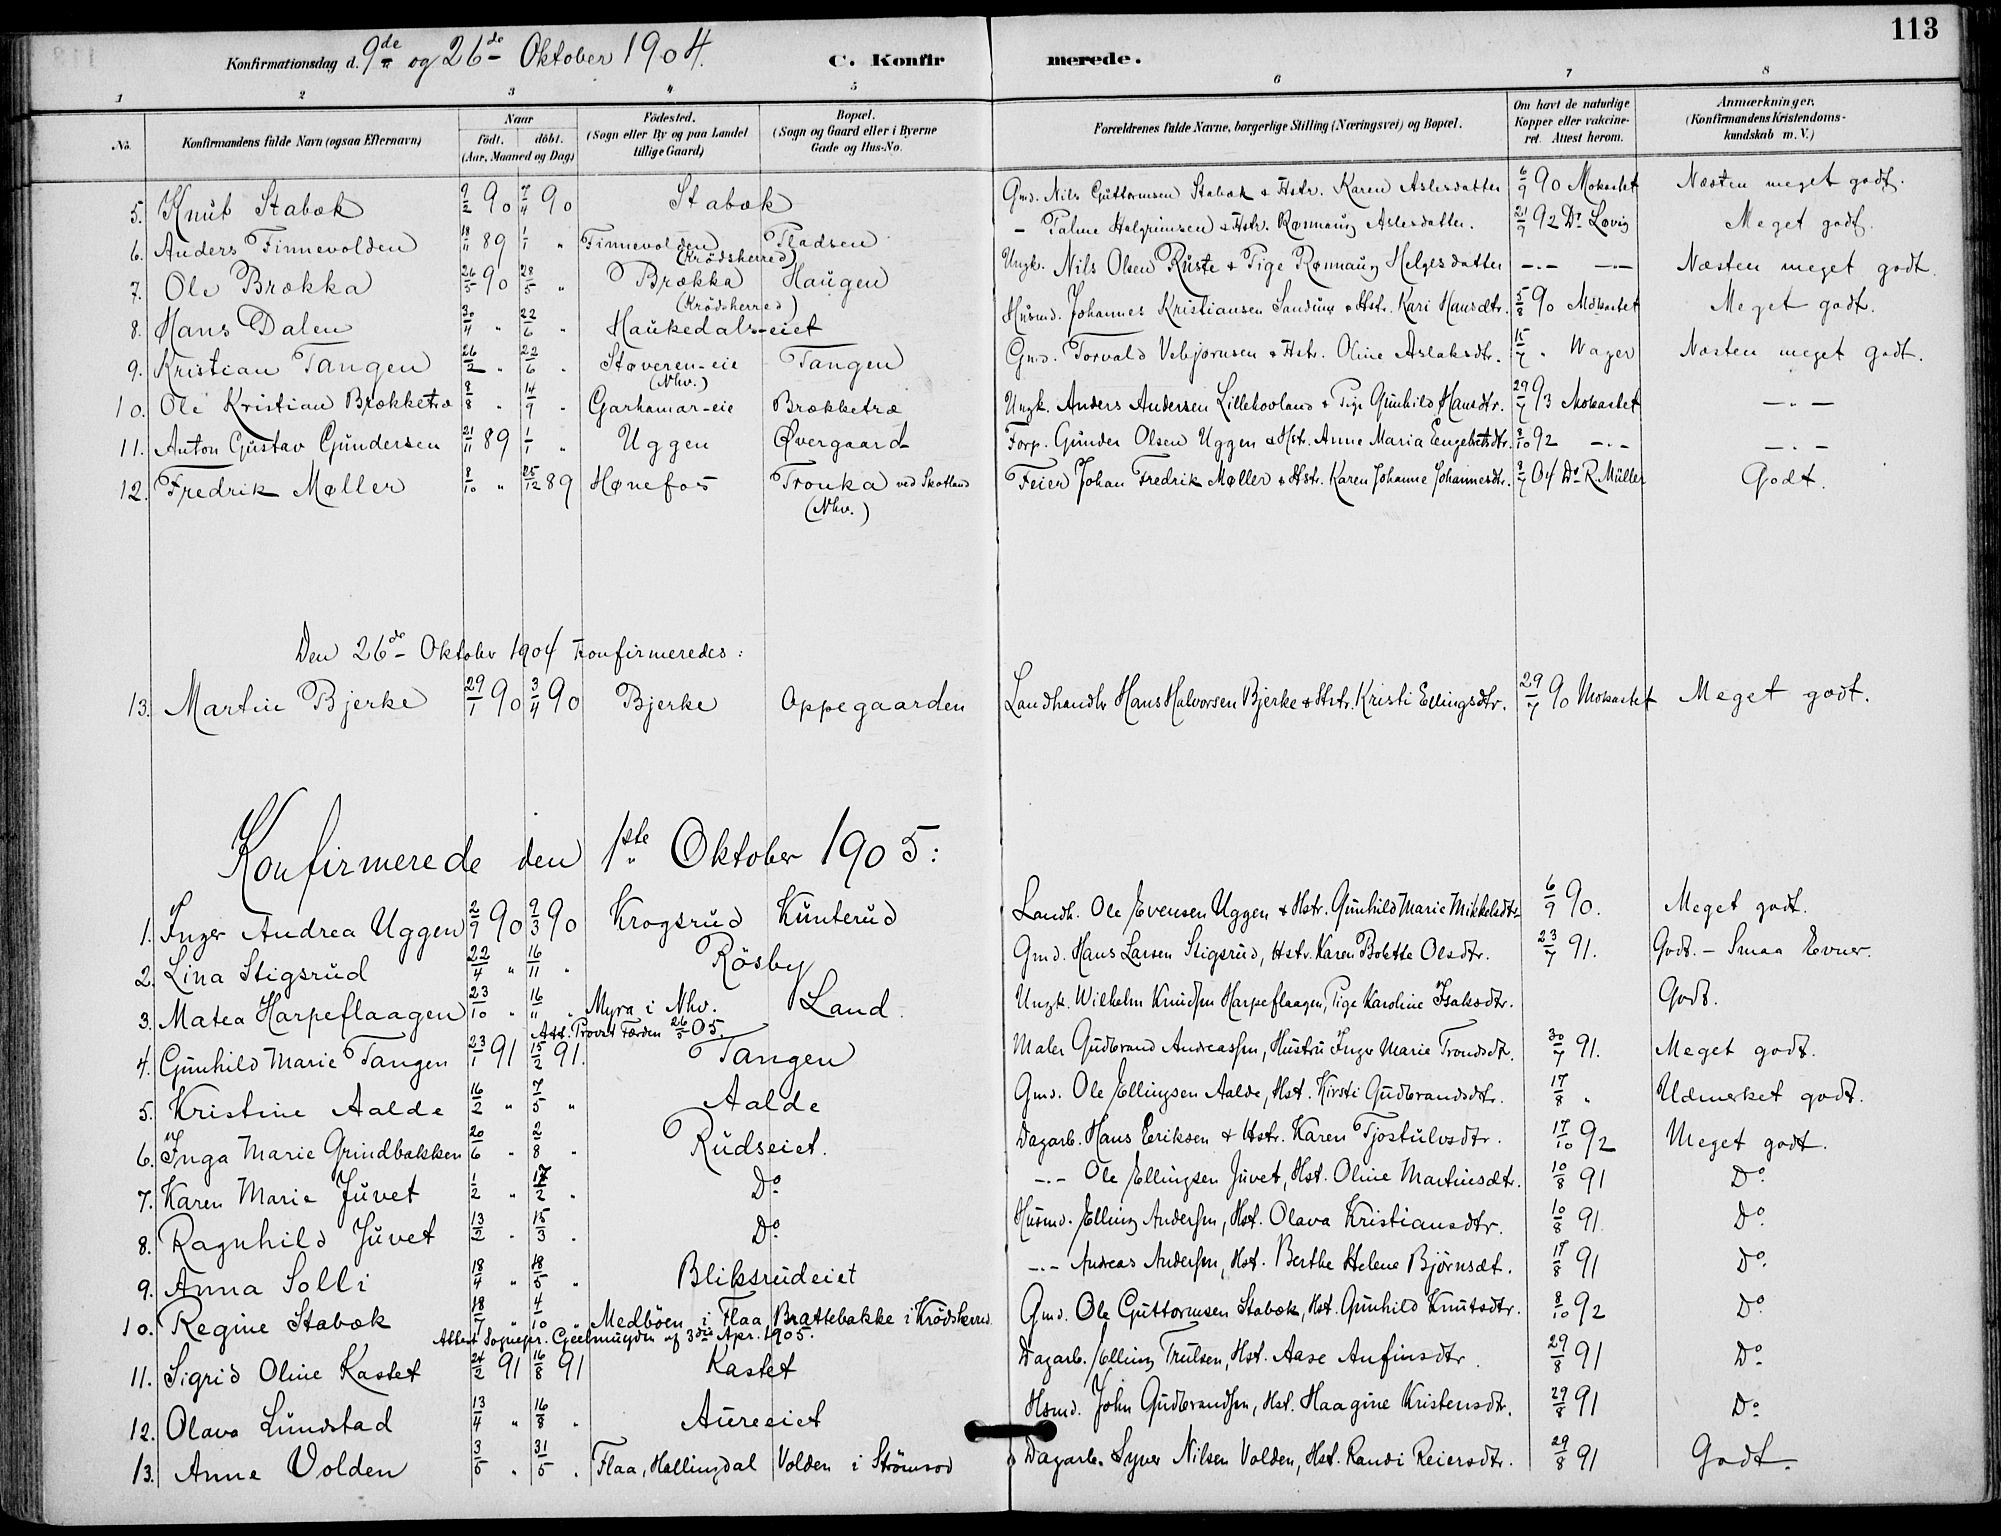 113
Konfirmationsdag d. 9de og 26de Oktober 1904. C. Konfirmerede.
1 2 3 4 5 6 7 8
No. Konfirmandens fulde Navn (ogsaa Efternavn) Naar födt. döbt. (Aar, Maaned og Dag) Födested. (Sogn eller By og paa Landet tillige Gaard) Bopæl. (Sogn og Gaard eller i Byerne Gade og Hus-No. Forældrenes fulde Navne, borgerlige Stilling (Næringsvei) og Bopæl. Om havt de naturlige Kopper eller vakcineret. Attest herom. Anmærkninger. (Konfirmandens Kristendomskundskab m. V.)
5. Knut Stabæk 9/2 90 7/4 90 Stabæk Gmd. Nils Guttormsen Stabæk & Hstr. Karen Aslesdatter 6/9 90 Mokastet Næsten meget godt.
6. Anders Finnevolden 18/11 89 1/1 " Finnevolden (Krödsherred) Pladsen - Palme Halgrimsen & Hstr. Rønnaug Aslesdatter. 21/9 92 Dr Løvig Meget godt.
7. Ole Brækka 26/5 90 28/5 " Brækka (Krödsherred) Haugen Ungk. Nils Olsen Ruste & Pige Rønnaug Helgesdatter -.- -.- Næsten meget godt.
8. Hans Dalen 30/4 " 22/6 " Haukedals-eiet Husmd. Johannes Kristiansen & Hstr. Kari Hansdtr. 5/8 90 Mokastet Meget godt.
9. Kristian Tangen 26/2 " 22/6 " Støveren-eie (Nhv.) Tangen Gmd. Torvald Vebjørnsen & Hstr. Oline Aslaksdtr. 15/7 " Wager Næsten meget godt.
10. Ole Kristian Brækketræ 8/8 " 14/9 " Garhamar-eie Brækketræ Ungk. Anders Andersen Lillehovland & Pige Gunhild Hansdtr. 29/7 93 Mokastet -"-
11. Anton Gustav Gundersen 21/11 89 1/1 " Uggen Øvergaard Forp. Gunder Olsen Uggen & Hstr. Anne Maria Engebretsdtr. 8/10 92 -.- -.-
12. Fredrik Møller 8/10 " 25/12 89 Hønefos Tronka ved Skotland (Nhv.) Feier Johan Fredrik Møller & Hstr. Karen Johanne Johannesdtr. 8/7 04 Dr R. Müller Godt.
Den 26de Oktober 1904 konfirmeredes:
13. Martin Bjerke 29/1 90 3/4 90 Bjerke Oppegaarden Landhandlr Hans Halvorsen Bjerke & Hstr. Kristi Ellingsdtr. 29/7 90 Mokastet Meget godt.
Konfirmerede den 1ste Oktober 1905:
1. Inger Andrea Uggen 2/9 90 9/3 90 Krogsrud Kunterud Landh. Ole Evensen Uggen & Hstr. Gunhild Marie Mikkelsdtr 6/9 90. Meget godt.
2. Lina Stigsrud 22/4 " 16/11 " Rösby Gmd. Hans Larsen Stigsrud, Hstr. Karen Bolette Olsdtr. 23/7 91. Godt. - Smaa Evner.
3. Matea Harpeflaagen 23/10 " 16/11 " Myra i Nhv. Land Ungk. Wilhelm Knudsen Harpeflaagen, Pige Karoline Isaksdtr. Godt.
Att. Provst Færden 26/5 05.
4. Gunhild Marie Tangen 23/1 91 15/2 91. Tangen Maler Gudbrand Andreassen, Hustru Inger Marie Trondsdt. 30/7 91. Meget godt.
5. Kristine Aalde 16/2 " 7/5 " Aalde Gmd. Ole Ellingsen Aalde, Hst. Kirsti Gudbrandsdtr. 17/8 " Udmerket godt.
6. Inga Marie Grindbakken 20/6 " 2/8 " Rudseiet. Dagarb. Hans Eriksen & Hstr. Karen Tjostulvsdtr. 17/10 92 Meget godt.
7. Karen Marie Juvet 1/2 " 17/2 " Do -.- Ole Ellingsen Juvet, Hst. Oline Martinsdtr. 10/8 91 Do
8. Ragnhild Juvet 13/2 " 15/3 " Do Husmd. Elling Andersen, Hst. Olava Kristiansdtr. 10/8 91. Do
9. Anna Solli 18/4 " 18/5 " Bliksrudeiet -.- Andreas Andersen, Hst. Berthe Helene Bjørnsdt. 17/8 91 Do
10. Regine Stabæk 18/7 " 4/10 " Medböen i Flaa Brattebakke i Krödsherred Gmd. Ole Guttormsen Stabæk, Hst. Gunhild Knutsdtr. 8/10 92 Do
Attest Sognepr. Gjeelmuyden af 3die Apr. 1905.
11. Sigrid Oline Kastet 24/2 91 16/8 91 Kastet Dagarb. Elling Trulsen, Hst. Aase Anfinsdtr. 29/8 91 Do
12. Olava Lundstad 13/4 " 16/8 " Aureeiet Hsmd. John Gudbrandsen, Hst. Haagine Kristensdtr. 29/8 91 Do
13. Anne Volden 3/5 " 31/5 " Flaa, Hallingdal Volden i Strömsod Dagarb. Syver Nilsen Volden, Hst. Randi Reiersdtr. 29/8 91 Godt.